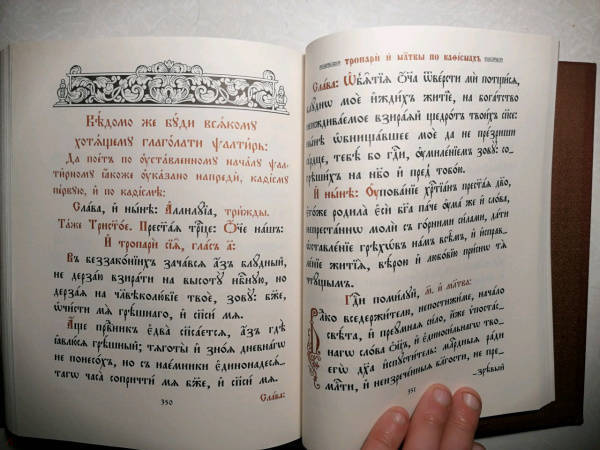 Вѣ́домо же бꙋ́ди всѧ́комꙋ
хотѧ́щемꙋ глаго́лати ѱалти́рь:
Да пое́тъ по ᲂу҆ста́вленномꙋ нача́лꙋ ѱал-
ти́рномꙋ ꙗ҆́коже ᲂу҆ка́зано напредѝ, каѳі́смꙋ
пе́рвꙋю, и҆ по каѳі́смѣ:
Сла́ва, и҆ ны́нѣ: А҆ллилꙋ́їа, три́жды.
Та́же Трист҃о́е. Прест҃а́ѧ трⷪ҇це: Ѻ҆́ч҃е на́шъ:
И҆ тропарѝ сїѧ̑, гла́съ а҃:
Въ беззако́нїихъ зача́всѧ а҆́зъ блꙋ́дный,
не дерза́ю взира́ти на высотꙋ̀ нбⷭ҇нꙋю, но
дерза́ѧ на чл҃вѣколю́бїе твоѐ, зовꙋ̀: бж҃е,
ѡ҆чи́сти мѧ̀ грѣ́шнаго, и҆ сп҃си́ мѧ.
А҆́ще првⷣникъ є҆два̀ спⷭ҇а́етсѧ, а҆́зъ гдѣ̀
ꙗ҆влю́сѧ грѣ́шный; тѧготы̀ и҆ зно́ѧ дневна́гѡ
не понесо́хъ, но съ нае́мники є҆динонадесѧ́-
тагѡ часа̀ сопричти́ мѧ бж҃е, и҆ сп҃си́ мѧ.
Сла́ва:
350
тропарѝ и҆ мл҃твы по каѳі́смахъ
Сла́ва: Ѡ҆б̾ѧ̑тїѧ ѻ҆́ч҃а ѿве́рсти мѝ потщи́сѧ,
блꙋ́днѡ моѐ и҆жди́хъ житїѐ, на бога́тство
неиждива́емое взира́ѧй щедро́тъ твои́хъ сп҃се:
ны́нѣ ѡ҆бнища́вшее моѐ да не пре́зриши
се́рдце, тебѣ́ бо гдⷭ҇и, ᲂу҆миле́нїемъ зовꙋ̀: со-
грѣши́хъ на нб҃о и҆ пред̾ тобо́ю.
И҆ ны́нѣ: Оу҆пова́нїе хрⷭ҇тїа́нъ прест҃а́ѧ дв҃о,
є҆го́же родила̀ є҆сѝ бг҃а па́че ᲂу҆ма̀ же и҆ сло́ва,
непреста́ннѡ молѝ съ го́рними си́лами, да́ти
ѡ҆ставле́нїе грѣхѡ́въ на́мъ всѣ̑мъ, и҆ и҆справ-
ле́нїе житїѧ̀, вѣ́рою и҆ любо́вїю при́снѡ тѧ̀
чтꙋ́щымъ.
Гдⷭ҇и поми́лꙋй, м҃. и҆ мл҃тва:
Влⷣко вседержи́телю, непостижи́ме, нача́ло
свѣ́та, и҆ преꙋ́мнаѧ си́ло, и҆́же ѵ҆поста́с-
нагѡ сло́ва ѻ҆ц҃ъ, и҆ є҆диноси́льнагѡ твоегѡ̀
дх҃а и҆спꙋсти́телю: милⷭ҇рдыѧ ра́ди
млⷭ҇ти, и҆ неизрече́нныѧ бл҃гости, не пре-
зрѣ́вый
351